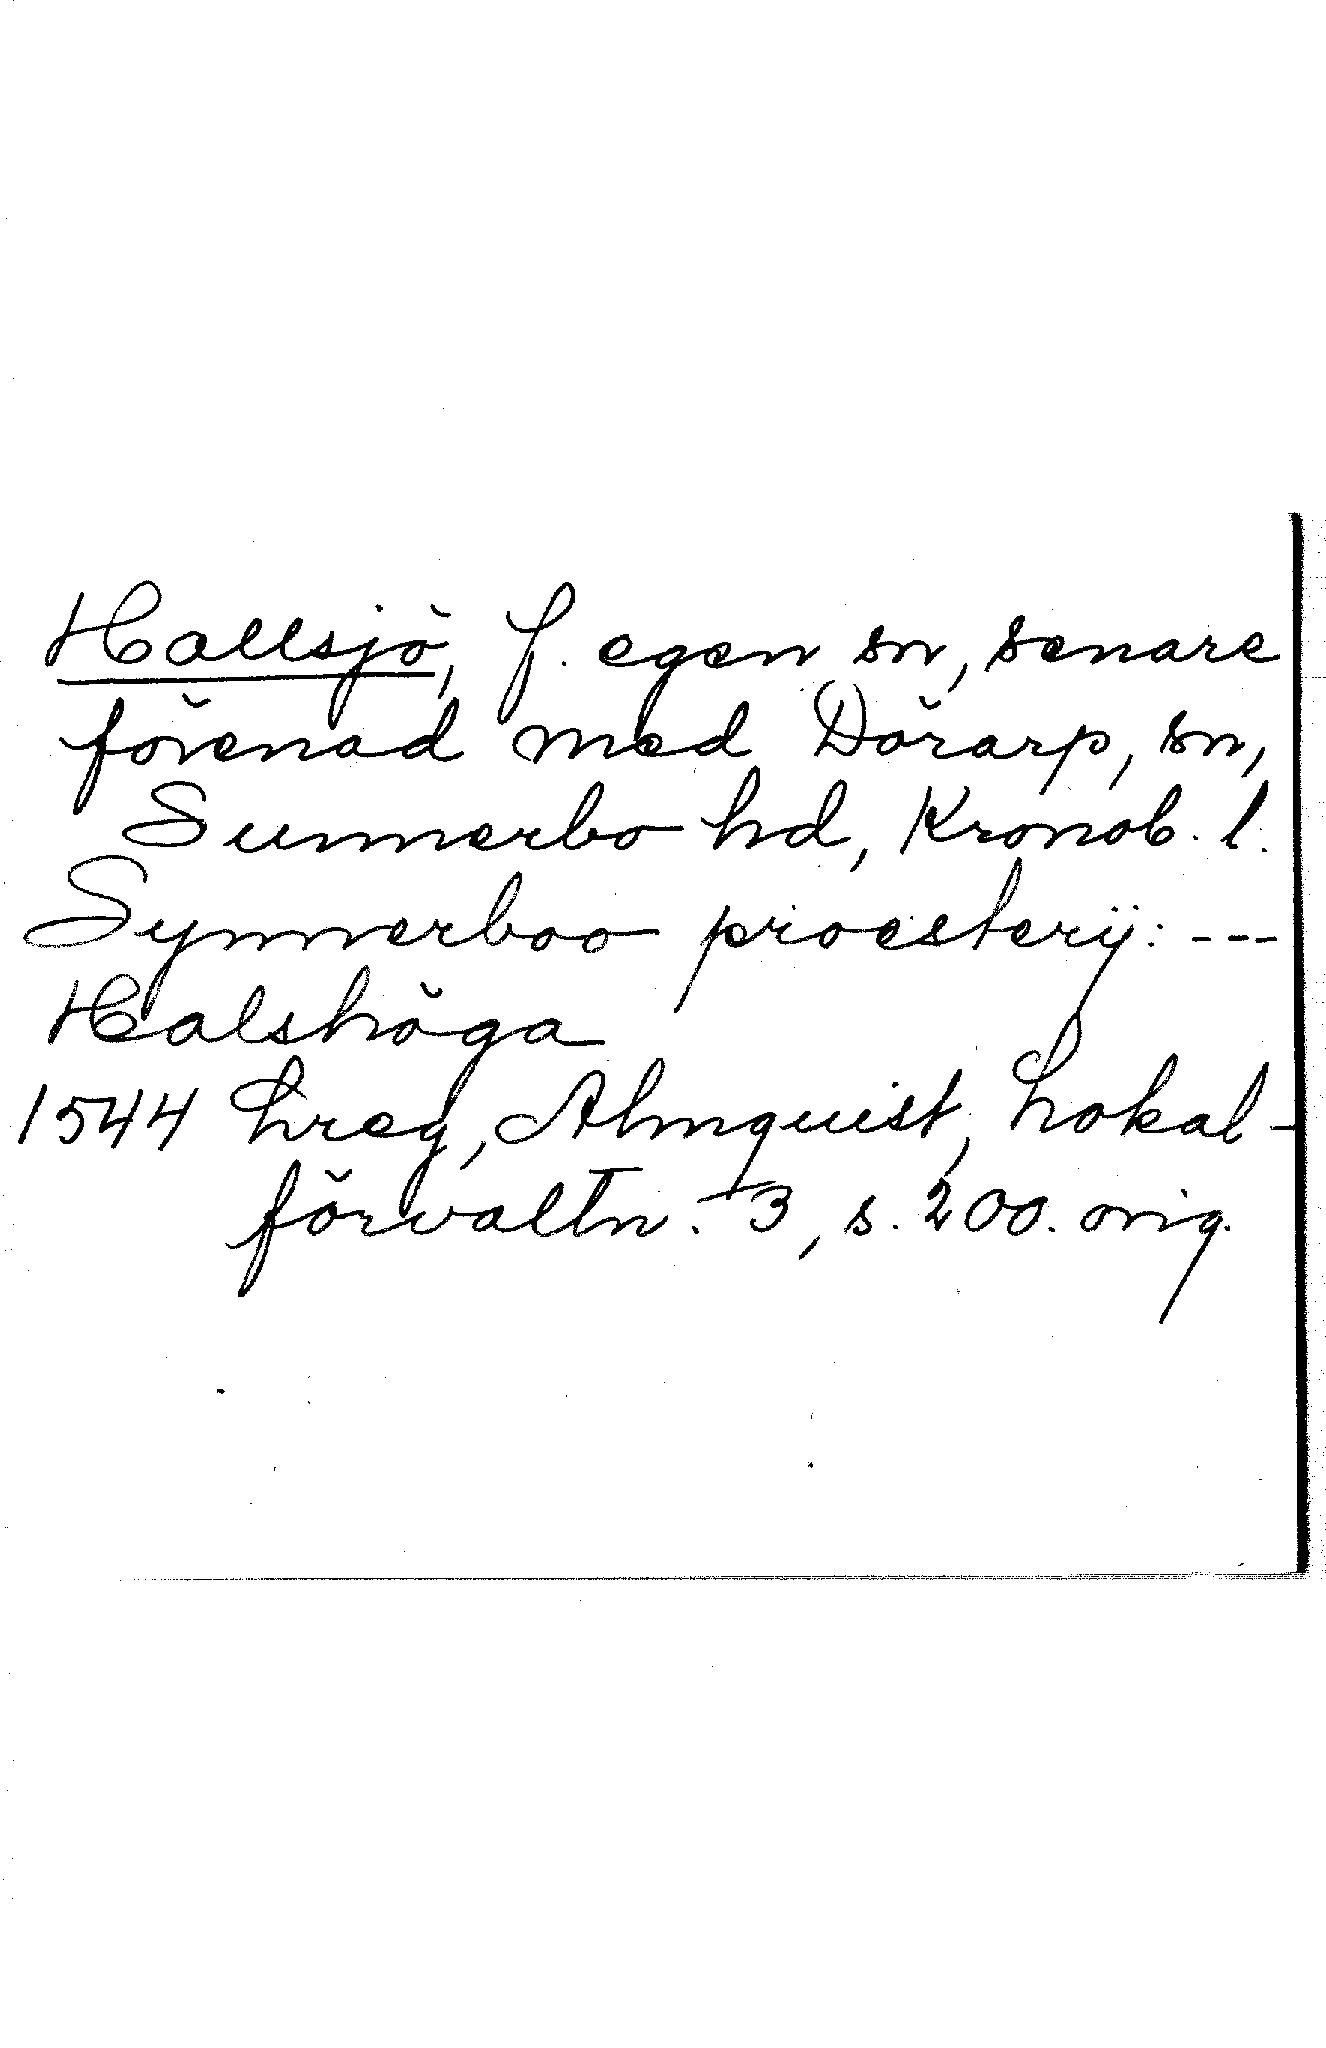 Hallsjö, f. egen sn, senare
förenad med Dörarp, sn,
Sunnerbo hd, Kronob. l.
Synnerboo proesterij: ---
Halshöga
1544 Lreg, Almquist, Lokal-
förvaltn. 3, s. 200. orig.